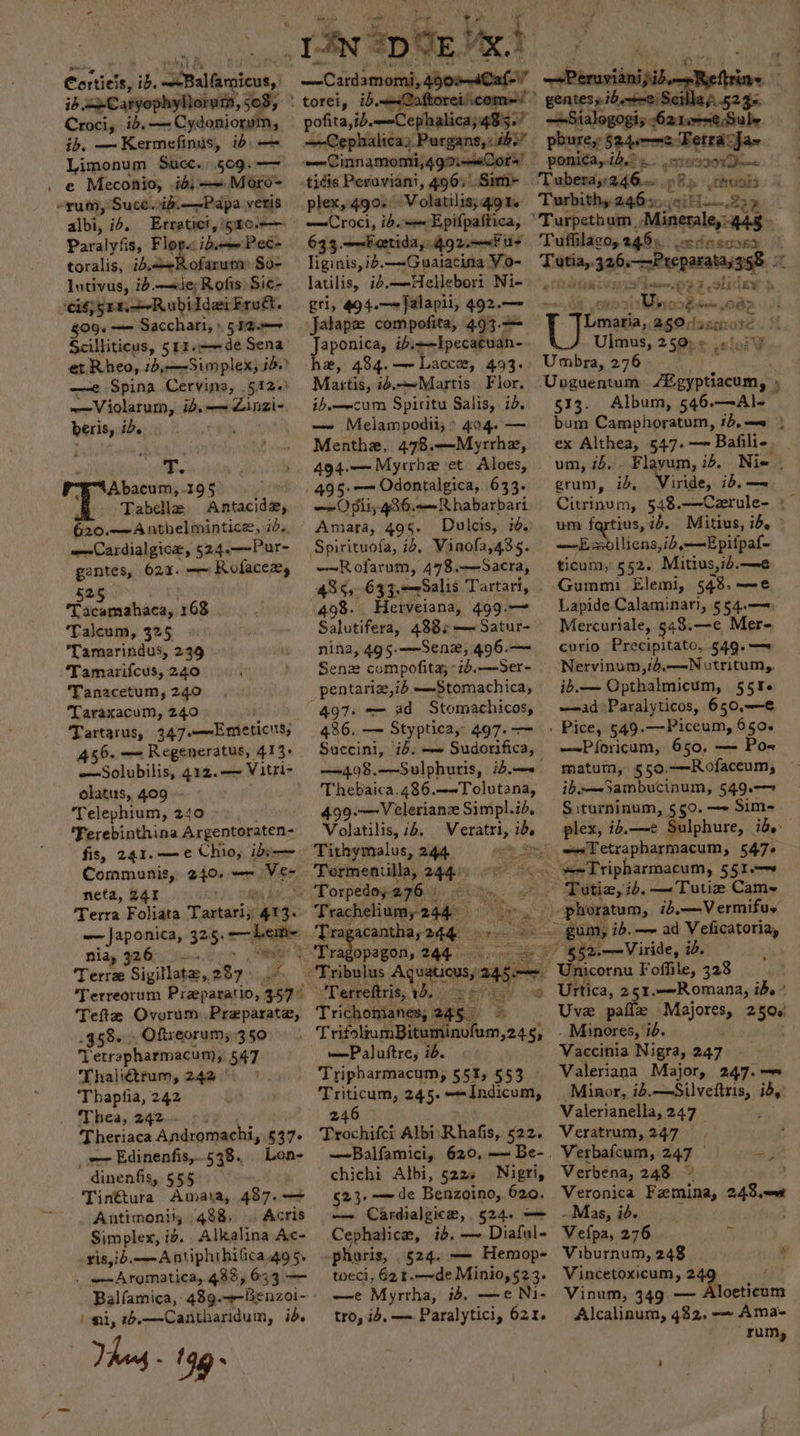 INDEX.
Corticis, ib. —Balsamicus,
ib.—Caryophyllorum, 508,
Croci, ib.—Cydoniorum,
ib. — Kermesinus, ib. —
Limonum Succ. 509. —
e Meconio, ib. — Moro-
rum, Succ. ib.—Papa veris
albi, ib. Erratici, 510.—
Paralysis, Flor. ib.— Pec-
toralis, ib.—Rosarum So-
lutivus, ib.—ie Rosis Sic-
cis, 511.—RubiIdæi Fruct.
509. — Sacchari, 512.—
Scilliticus, 511.—de Sena
et Rheo, ib,—Simplex, ib.
—e Spina Cervina, 512.
—Violarum, ib.— Zinzi-
beris, ib.
T.
TAbacum, 195
Tabellæ Antacidæ,
620.—Anthelminticæ, ib.
—Cardialgicæ, 524.—Pur-
gantes, 621. — Rosaceæ,
525
Tacamahaca, 168
Talcum, 325
Tamarindus, 239
Tamariscus, 240
Tanacetum, 240
Taraxacum, 240
Tartarus, 347.—Emeticus;
456. — Regeneratus, 413.
—Solubilis, 412.— Vitri-
olatus, 409
Telephium, 240
Terebinthina Argentoraten-
sis, 241.— e Chio, ib.—
Communis, 240. — Ve-
neta, 241
Terra Foliata Tartari, 413.
— Japonica, 325.— Lem-
nia, 326
Terræ Sigillatæ, 287
Terreorum Præparatio, 357
Testæ Ovorum Præparatæ,
358. . Ostreorum, 350
Tetrapharmacum, 547
Thalictrum, 242
Thapsia, 242
Thea, 242
Theriaca Andromachi, 537.
— Edinensis, 538. Lon-
dinensis, 555
Tinctura Amara, 487. —
Antimonii, 488. Acris
Simplex, ib. Alkalina Ac-
ris, ib.—Antiphthisica 495.
—Aromatica, 488, 633 —
Balsamica, 489.—Benzoi-
ni, ib.—Cantharidum, ib.
—Cardamomi, 490.—Cas-
torei, ib.—Castorei com-
posita, ib.—Cephalica, 485.
—Cephalica Purgans, ib.
—Cinnamomi, 490.—Cor-
ticis Peruviani, 496. Sim-
plex, 490. Volatilis, 491.
—Croci, ib.— Epispastica,
633.—Fœtida, 492.—Fu-
liginis, ib.—Guaiacina Vo-
latilis, ib.—Hellebori Ni-
gri, 494.— Jalapii, 492.—
Jalapæ composita, 493.—
Japonica, ib.—Ipecacuan-
hæ, 484.— Laccæ, 493.
Martis, ib.—Martis Flor.
ib.—cum Spiritu Salis, ib.
— Melampodii, 494. —
Menthæ, 478.—Myrrhæ,
494.— Myrrhæ et Aloes,
495.— Odontalgica, 633.
—Opii, 486.—Rhabarbari
Amara, 495. Dulcis, ib.
Spirituosa, ib. Vinosa, 485.
—Rosarum, 478.—Sacra,
485, 633.—Salis Tartari,
498. Herveiana, 499.—
Salutifera, 488. — Satur-
nina, 495.—Senæ, 496.—
Senæ composita, ib.—Ser-
pentariæ, ib —Stomachica,
497. — ad Stomachicos,
486. — Styptica, 497. —
Succini, ib. — Sudorifica,
—498.—Sulphuris, ib.—
Thebaica. 486.—Tolutana,
499.—Velerianæ Simpl. ib.
Volatilis, ib. Veratri, ib.
Tithymalus, 244
Tormentilla, 244.
Torpedo, 276
Trachelium, 244
Tragacantha, 244
Tragopagon, 244
Tribulus Aquaticus, 245.—
Terrestris, ib.
Trichomanes, 245.
TrifoliumBituminosum, 245,
—Palustre, ib.
Tripharmacum, 551, 553
Triticum, 245. — Indicum,
246
Trochisci Albi Rhasis, 522.
—Balsamici, 620, — Be-
chichi Albi, 522. Nigri,
523. — de Benzoino, 620.
— Cardialgicæ, 524. —
Cephalicæ, ib. — Diasul-
phuris, 524. — Hemop-
toeci, 621.—de Minio, 523.
—e Myrrha, ib. — e Ni-
tro, ib. — Paralytici, 621.
—Peruviani, ib.—Restrin-
gentes, ib.—e Scilla, 523.
—Sialogogi, 621.—e Sul-
phure, 524.— Terra Ja-
ponica, ib.
Tubera, 246
Turbith, 246
Turpethum Minerale, 448
Tussilago, 246.
Tutia, 326.—Præparata, 358
U.
ULmaria, 250
Ulmus, 250
Umbra, 276
Unguentum Ægyptiacum,
513. Album, 546.—Al-
bum Camphoratum, ib. —
ex Althea, 547. — Basili-
um, ib. Flavum, ib. Nie
grum, ib. Viride, ib. —
Citrinum, 548.—Cærule-
um fortius, ib. Mitius, ib.
—Emolliens, ib,—Epispas-
ticum, 552. Mitius, ib.—e
Gummi Elemi, 548. — e
Lapide Calaminari, 554.—
Mercuriale, 548.—e Mer-
curio Precipitato, 549. —
Nervinum, ib.—Nutritum,
ib.— Opthalmicum, 551.
—ad Paralyticos, 650,—e
Pice, 549.—Piceum, 650.
—Psoricum, 650. — Po-
matum, 550.—Rosaceum,
ib.—Sambucinum, 549.—
Saturninum, 550. — Sim-
plex, ib.—e Sulphure, ib.
—Tetrapharmacum, 547.
—Tripharmacum, 551.—
Tutiæ, ib. — Tutiæ Cam-
phoratum, ib.—Vermifu-
gum, ib. — ad Vesicatoria,
552.—Viride, ib.
Unicornu Fossile, 328
Urtica, 251.—Romana, ib.
Uvæ passæ Majores, 250.
Minores, ib.
Vaccinia Nigra, 247
Valeriana Major, 247. —
Minor, ib.—Silvestris, ib.
Valerianella, 247
Veratrum, 247
Verbascum, 247
Verbena, 248
Veronica Fæmina, 248.—
Mas, ib.
Vespa, 276
Viburnum, 248
Vincetoxicum, 249
Vinum, 349 — Aloeticum
Alcalinum, 482. — Ama-
rum,
199.